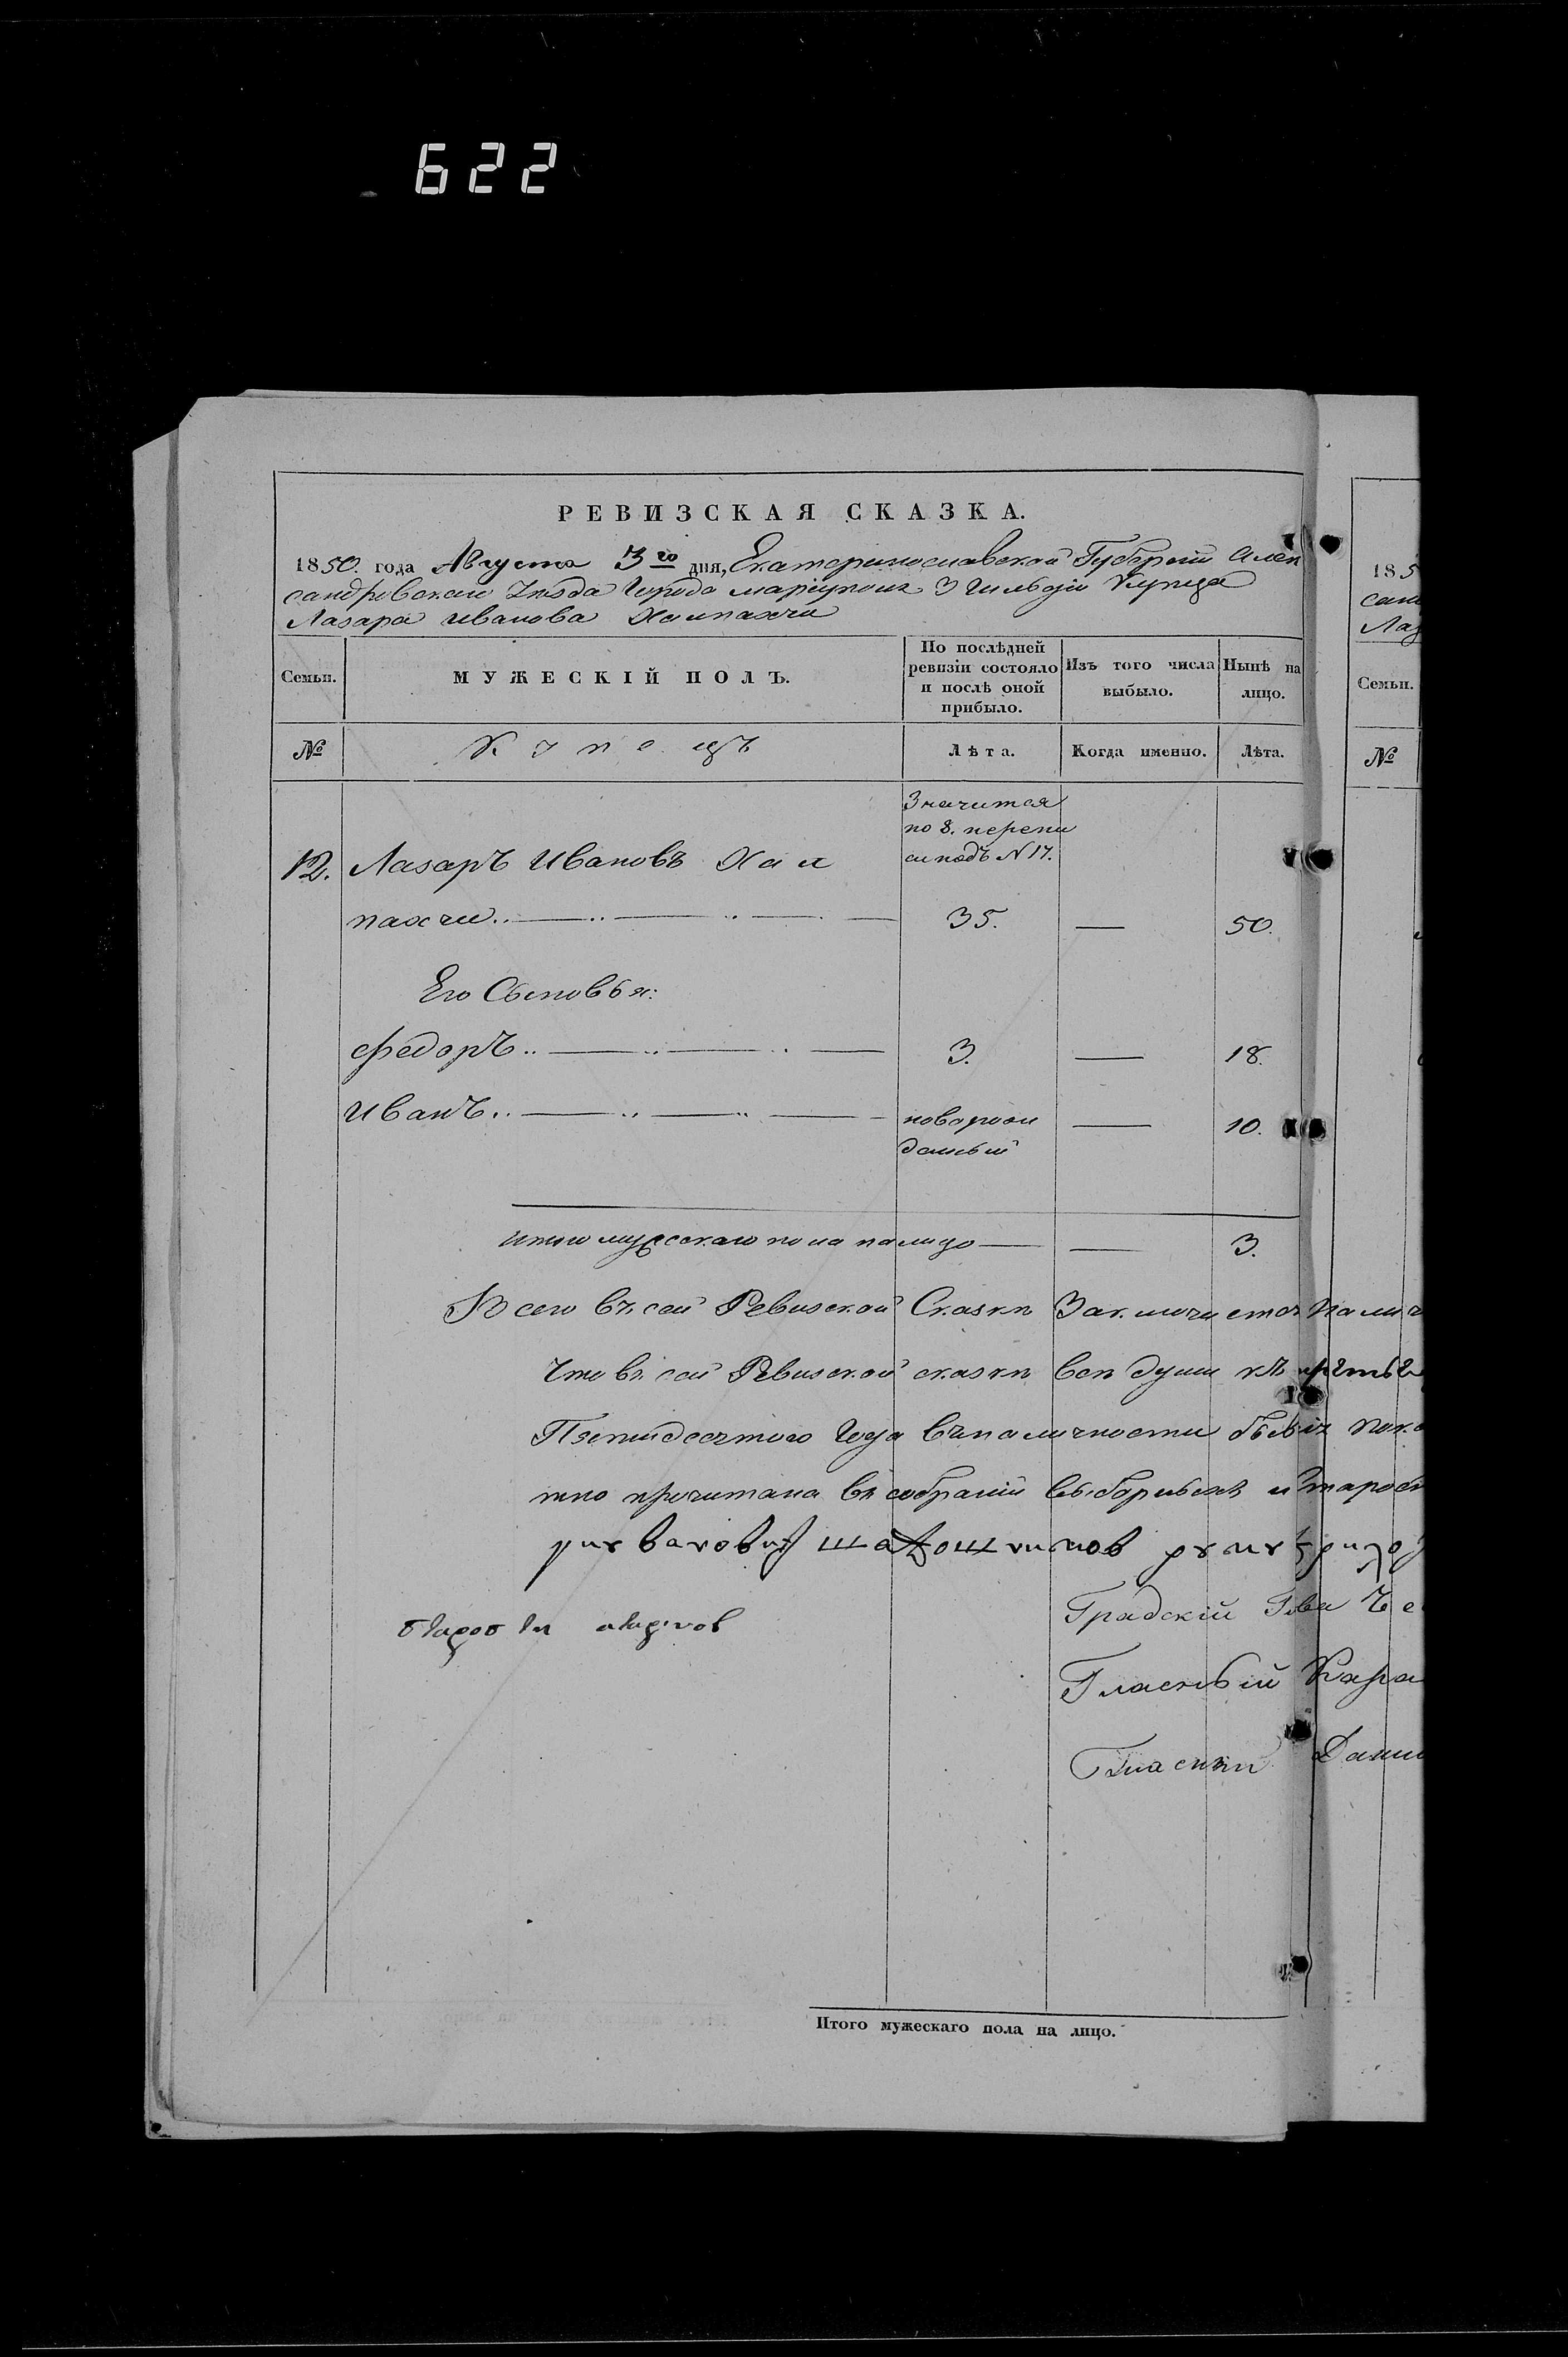 622
РЕВИЗСКАЯ СКАЗКА.
1850. года Августа 3го дня, Екатеринославской Губерніи Алек
сандровскаго Уезда Города Маріуполя 3 Гильдіи Купца
Лазара Иванова Халпахчи
Семьи.
МУЖЕСКІЙ ПОЛЪ.
По послѣдней ревизіи состояло и послѣ оной прибыло.
Изъ того числа выбыло.
Нынѣ на лицо.
№
Купецъ
Лѣта.
Когда именно.
Лѣта.
Значится
по 8. перепи
си подъ N 17.
12. Лазаръ Ивановъ Хал
пахчи.. 35. — 50.
Его Сыновья:
Федоръ.. 3. — 18.
Иванъ.. новорож
данный — 10.
итого мужескаго пола налицо — — 3.
Всего въ сей Ревизской Сказкѣ Заключается налич
Что въ сей Ревизской сказкѣ все души
Пятидесятого Года въ наличности были пока
но прочитана въ собраніи выборныхъ и старост
Градскій Глава Че
Гласный Кара
Гласный Дани
Итого мужескаго пола на лицо.
185
сан
Лаз
Семьи.
№